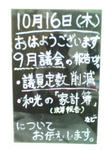 10月16日(木)
おはようございます
9月議会の報告
・議員定数削減
・和光の「家計簿」
(決算報告)
など
について
お伝えします。